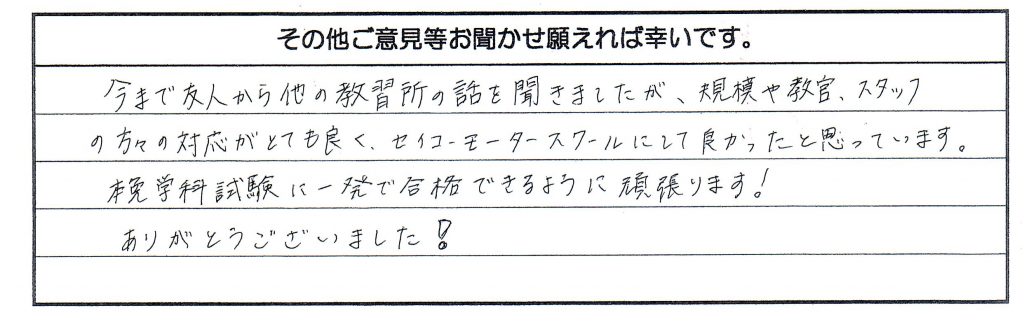 その他ご意見等お聞かせ願えれば幸いです。
今まで友人から他の教習所の話を聞きましたが、規模や教官、スタッフ
の方々の対応がとても良く、セイコーモータースクールにして良かったと思っています。
本免学科試験に一発で合格できるように頑張ります!
ありがとうございました!